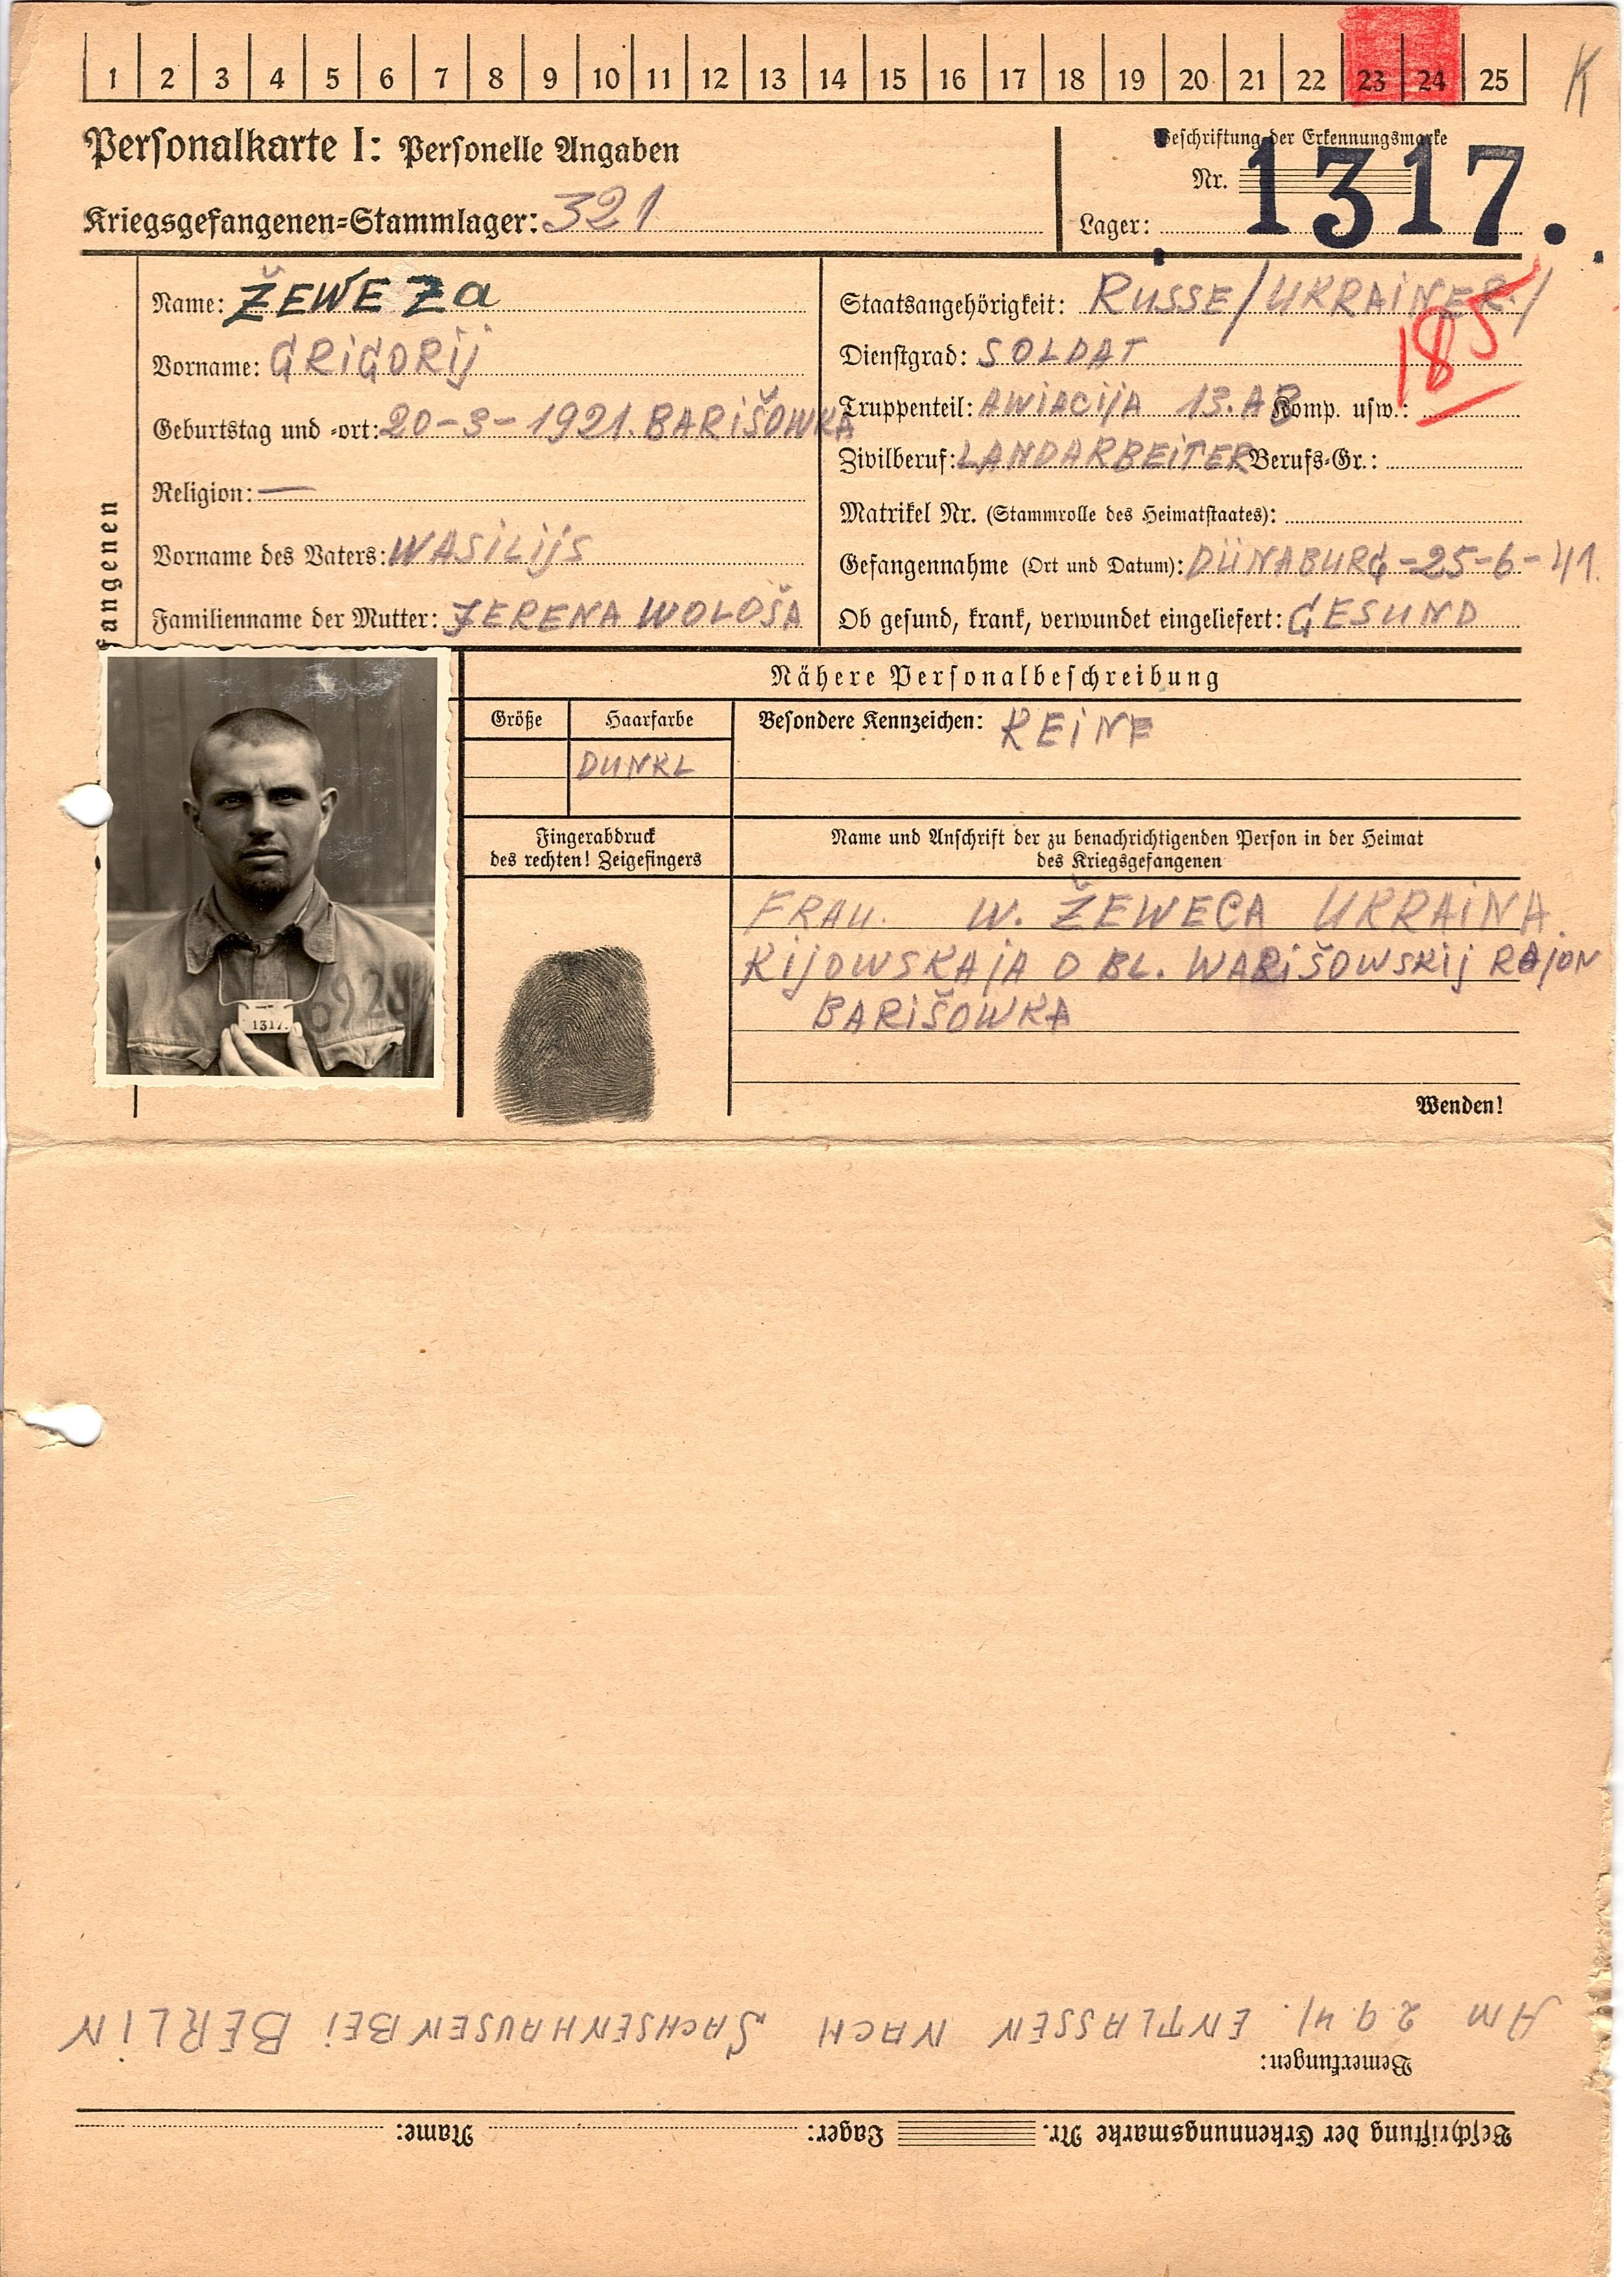 1 2 3 4 5 6 7 8 9 10 11 12 13 14 15 16 17 18 19 20 21 22 23 24 25
K
Personalkarte I: Personelle Angaben
Kriegsgefangenen-Stammlager: 321
Beschriftung der Erkennungsmarke
Nr. 1317.
Lager:
Name: ŽEWEZa
Vorname: GRIGORIJ
Geburtstag und -ort: 20-3-1921. BARIŠOWKA
Religion: —
Vorname des Vaters: WASILIJS
Familienname der Mutter: JERENA WOLOŠA
fangenen
Staatsangehörigkeit: RUSSE/UKRAINER/
185
Dienstgrad: SOLDAT
Truppenteil: AWIACIJA 13. AB Komp. usw.:
Zivilberuf: LANDARBEITER Berufs-Gr.:
Matrikel Nr. (Stammrolle des Heimatstaates):
Gefangennahme (Ort und Datum): DÜNABURG-25-6-41.
Ob gesund, krank, verwundet eingeliefert: GESUND
Nähere Personalbeschreibung
Größe
Haarfarbe
DUNKL
Besondere Kennzeichen: KEINE
Fingerabdruck
des rechten! Zeigefingers
Name und Anschrift der zu benachrichtigenden Person in der Heimat
des Kriegsgefangenen
FRAU. W. ŽEWECA UKRAINA.
KIJOWSKAJA OBL. WARIŠOWSKIJ RAJON
BARIŠOWKA
6920
1317.
Wenden!
Beschriftung der Erkennungsmarke Nr. Lager: Name:
Bemerkungen:
AM 2.9.41. ENTLASSEN NACH SACHSENHAUSEN BEI BERLIN